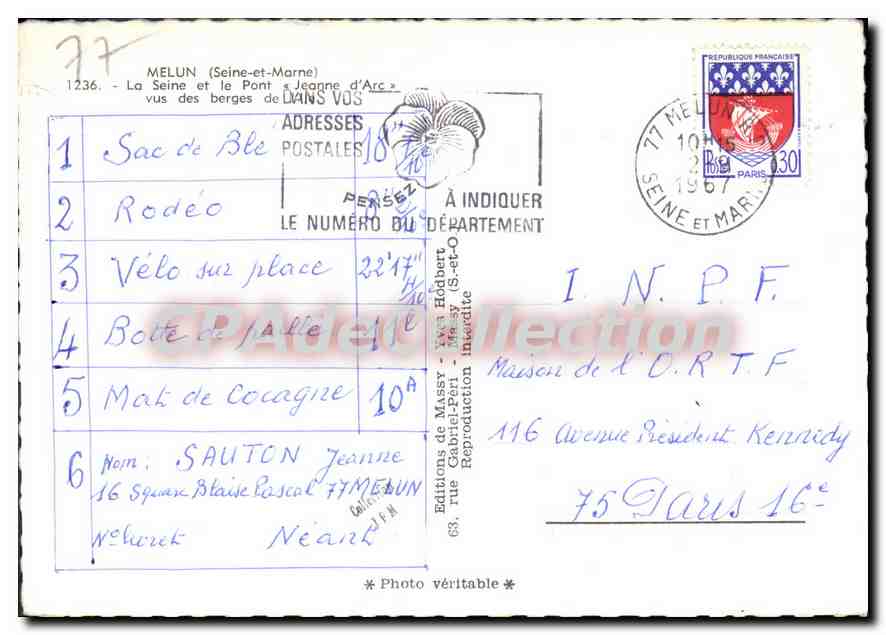 77
MELUN (Seine-et-Marne)
1236. - La Seine et le Pont « Jeanne d'Arc »
vus des berges de
DANS VOS
ADRESSES
POSTALES
PENSEZ
À INDIQUER
LE NUMÉRO DU DÉPARTEMENT
REPUBLIQUE FRANÇAISE
Postes 0,30
PARIS
77 MELUN
10H15
2-9
1967
SEINE ET MARNE
1 Sac de Blé 18"
2 Rodéo 8"
3 Vélo sur place 22'17" 4/10e
4 Botte de paille 11
5 Mat de Cocagne 10A
6 Nom: SAUTON Jeanne
16 Square Blaise Pascal 77 MELUN
N° livret Néant
Collection
J F H
Editions de MASSY - Yves Hodbert
63, rue Gabriel-Péri - Massy (S.-et-O.)
Reproduction interdite
I. N. P. F.
Maison de l'O.R.T.F
116 Avenue Président Kennedy
75 Paris 16e
* Photo véritable *
CPAdecollection